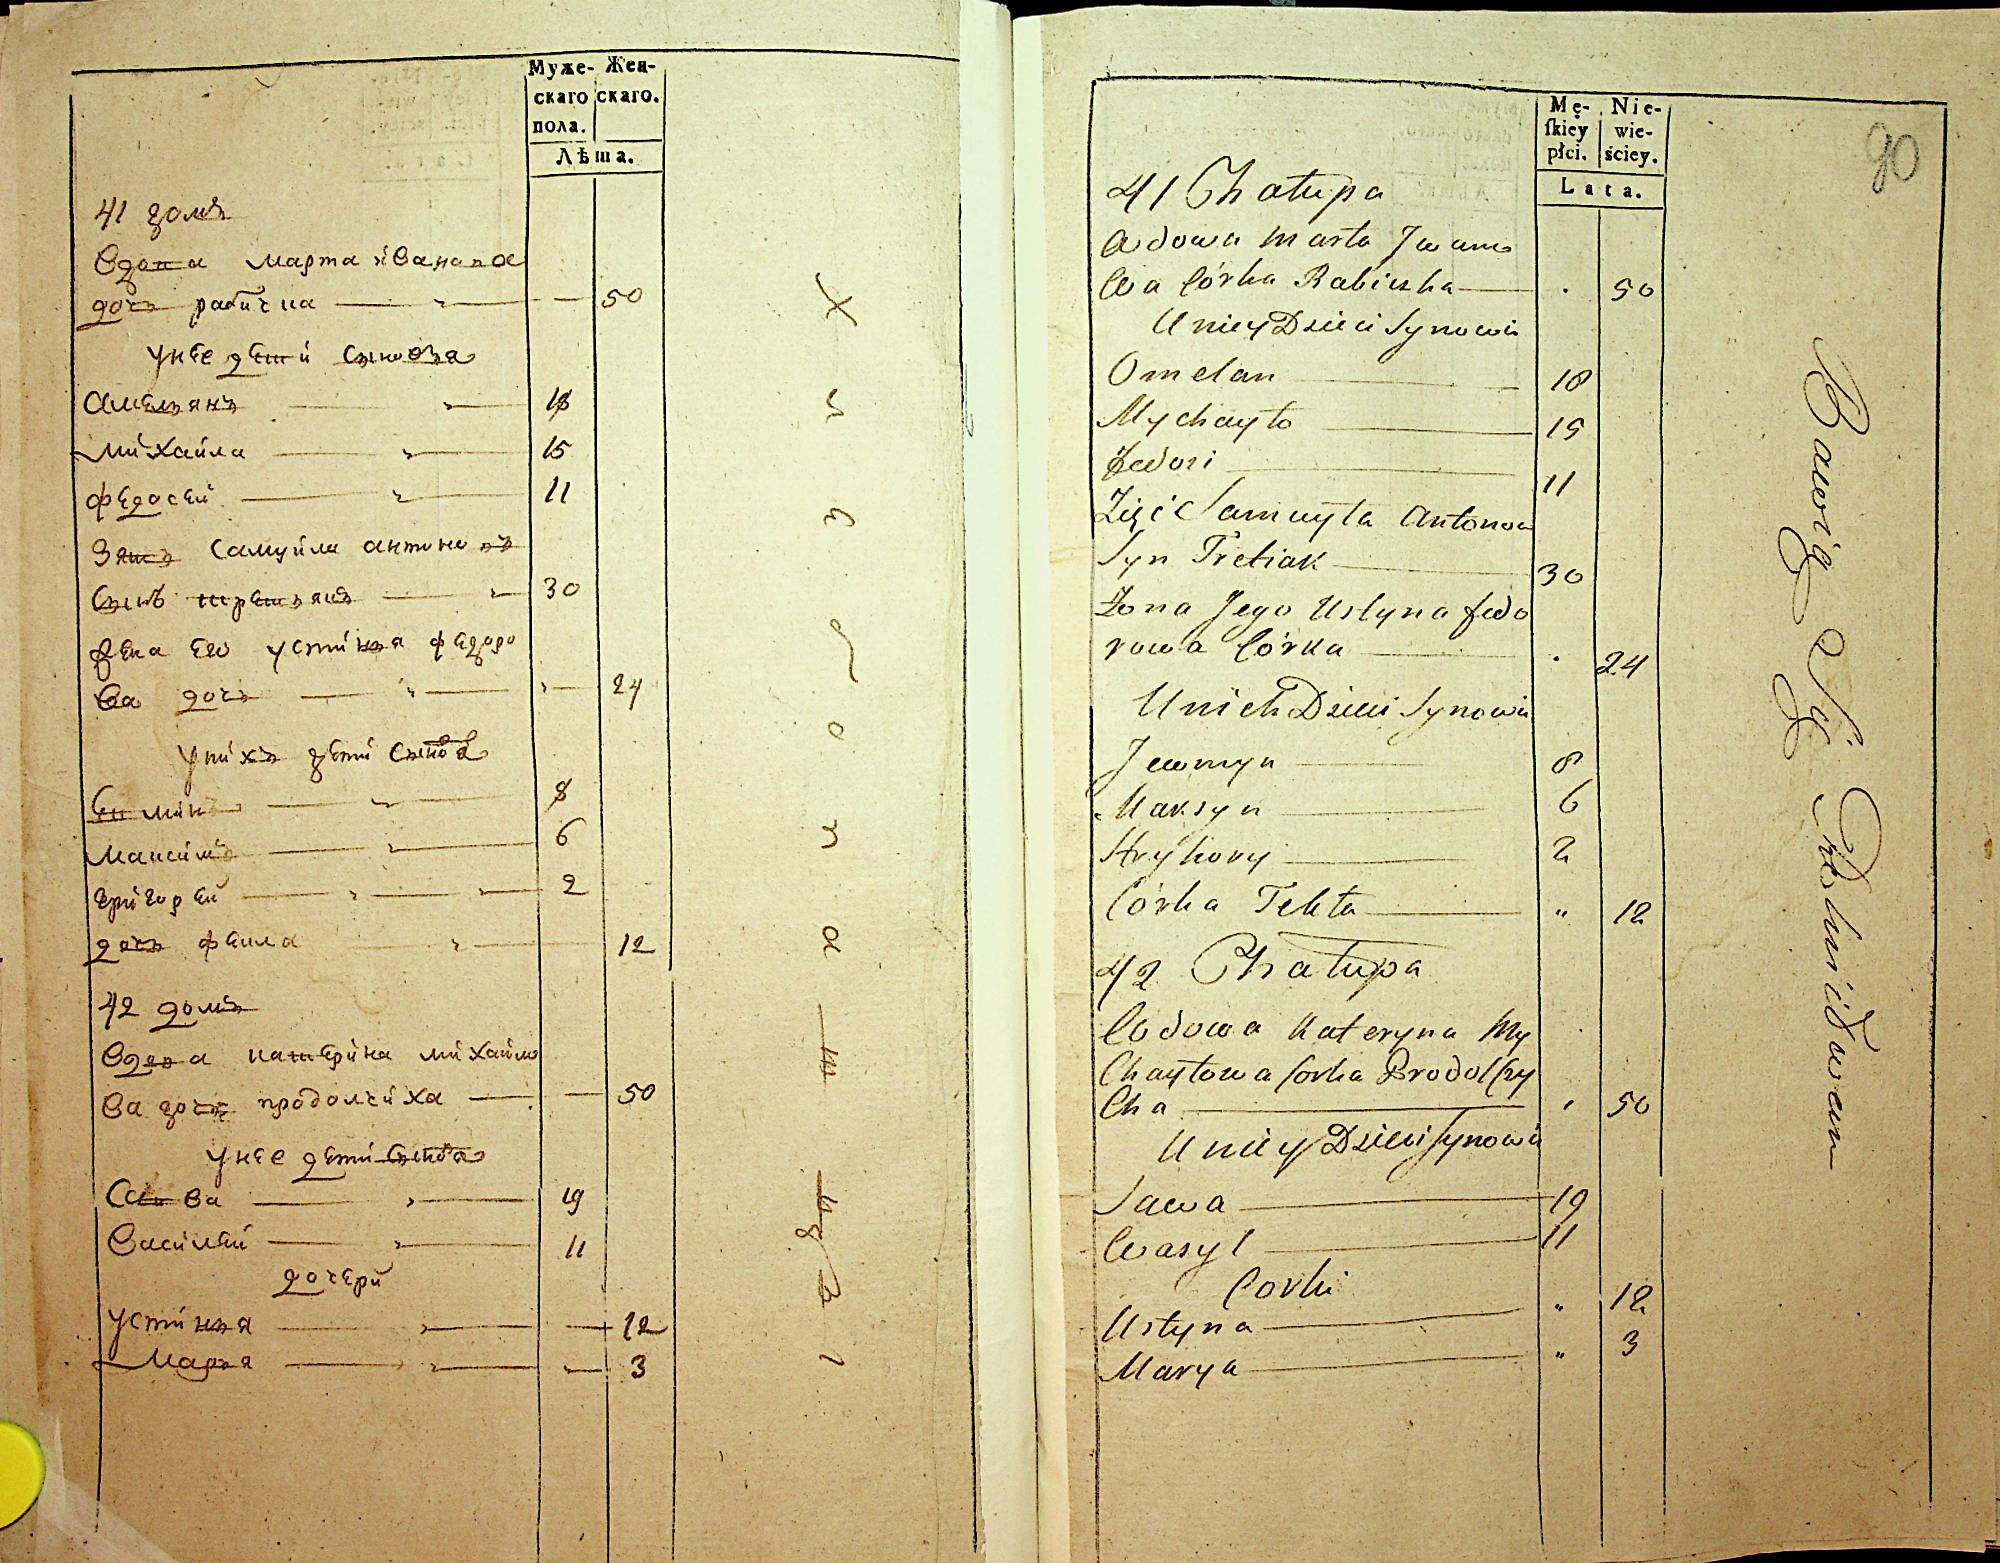 Муже- Жен-
скаго скаго.
пола.
Лѣта.
41 домъ
Вдова марта ивано
дочь рабичка 50
унее дети сыновья
Амельянъ 18
Михайла 15
Федосей 11
Зять Самуйла антоновъ
Сынъ третьякъ 30
жена его устинья федоро
ва дочь 24
унихъ дети сынов̾я
8
Максимъ 6
григорей 2
дочь фекла 12
42 домъ
Вдова катерина михайло
ва дочь 50
унее дети сынов̾я
Савва 19
Василей 11
дочери
устинья 12
Марья 3
Mę- Nie-
ſkiey wie-
płci. ściey.
Lata.
90
41 Chałupa
Wdowa Marta Iwano
wa Córka Rabiczka 50
U niey Dzieci Synowie
Omelan 18
Mychayło 15
Fedosi 11
Zięć Samuyła Antonow
Syn Tretiak 30
Żona Jego Ustyna fedo
rowa Córka 24
U nich Dzieci Synowie
Jewmyn 8
Maksyn 6
Hryhory 2
Córka Tekla 12
42 Chałupa
Wdowa Kateryna My
chayłowa Corka
cha 50
U niey Dzieci Synowie
Sawa 19
Wasyl 11
Corki
Ustyna 12
Marya 3
Bawią Się